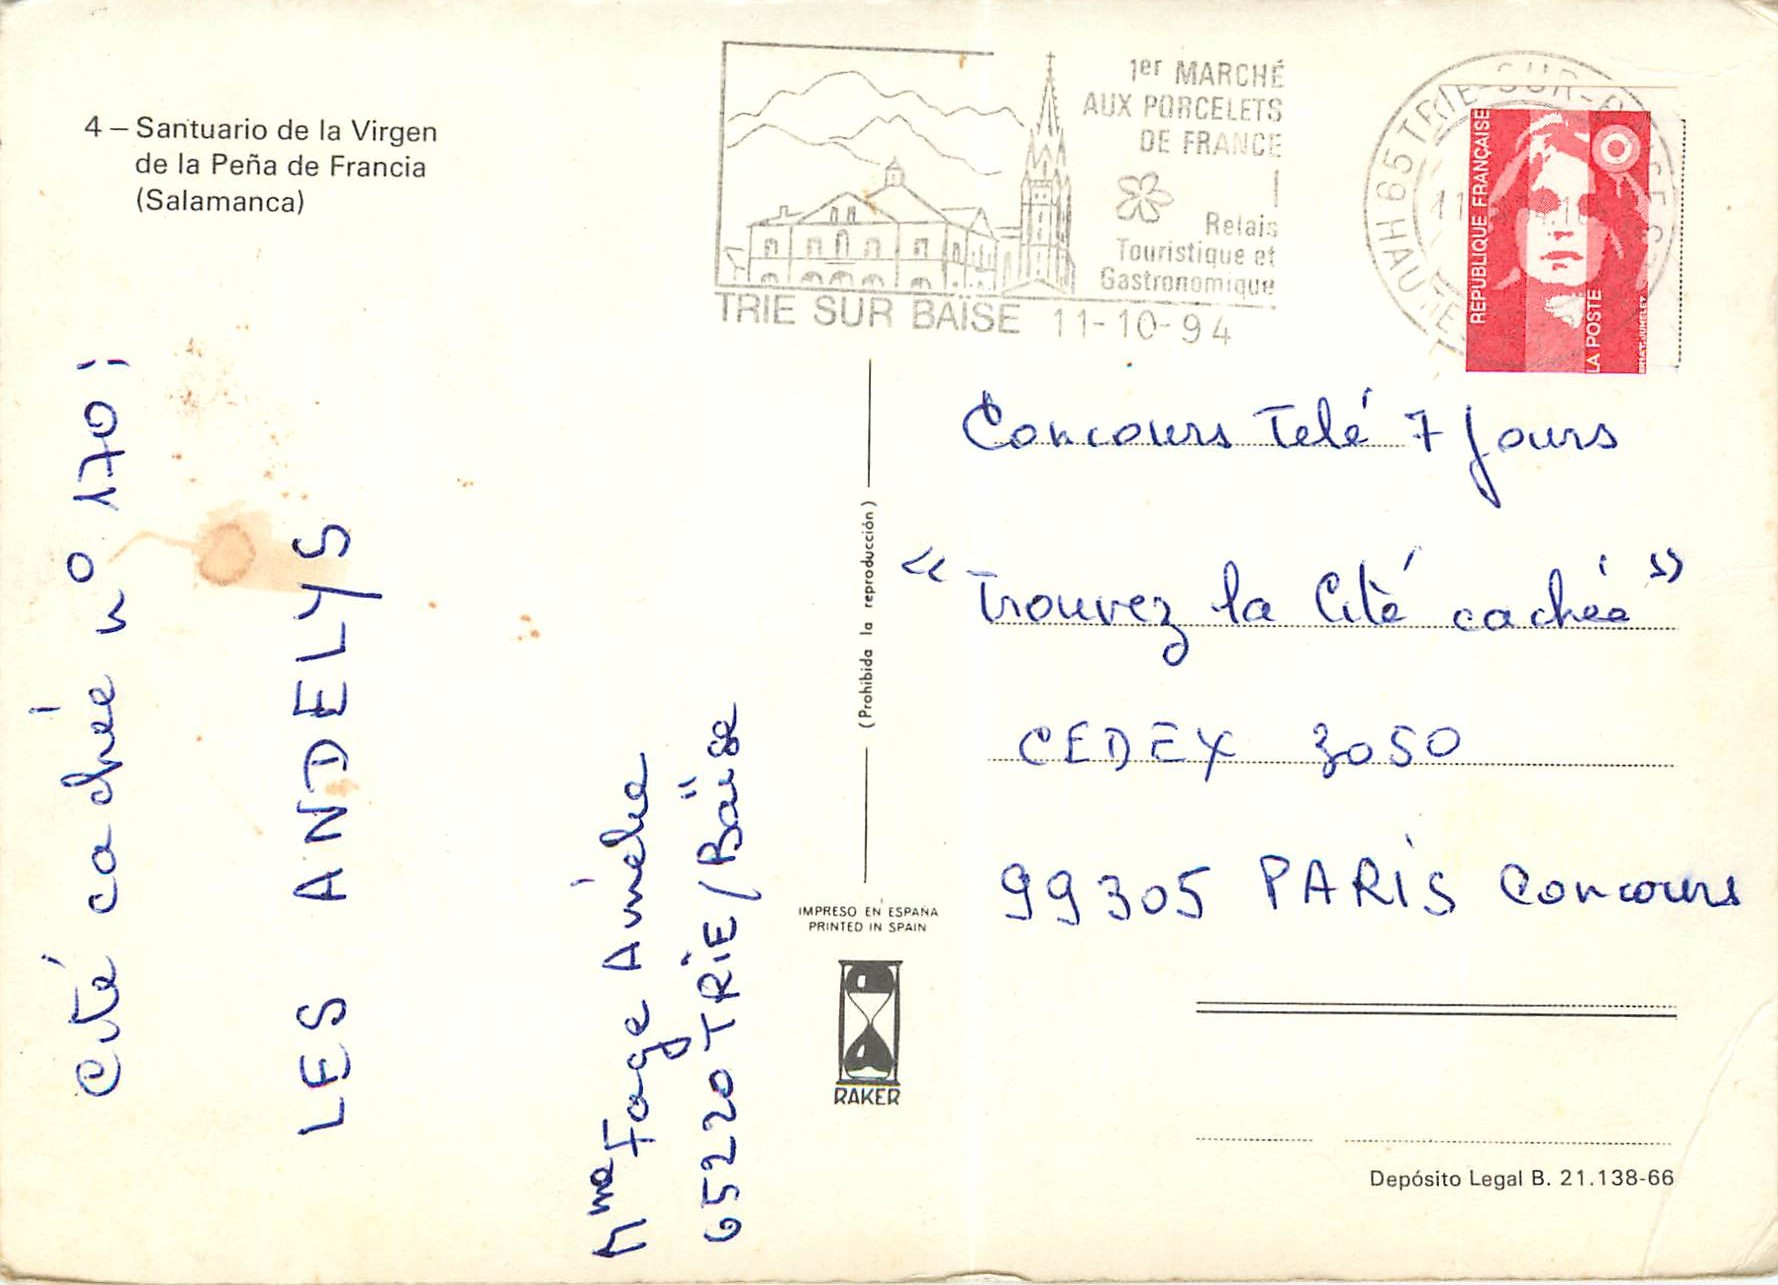 4 – Santuario de la Virgen
de la Peña de Francia
(Salamanca)
1er MARCHÉ
AUX PORCELETS
DE FRANCE
Relais
Touristique et
Gastronomique
TRIE SUR BAÏSE 11-10-94
65 TRIE-SUR-BAISE
RÉPUBLIQUE FRANÇAISE
LA POSTE
Cité cachée no 170 :
LES ANDELYS
Mme Fage Aimée
65220 TRIE/Baïse
(Prohibida la reproducción)
IMPRESO EN ESPAÑA
PRINTED IN SPAIN
RAKER
Concours Telé 7 Jours
« Trouvez la Cité cachée »
CEDEX 3050
99305 PARIS Concours
Depósito Legal B. 21.138-66